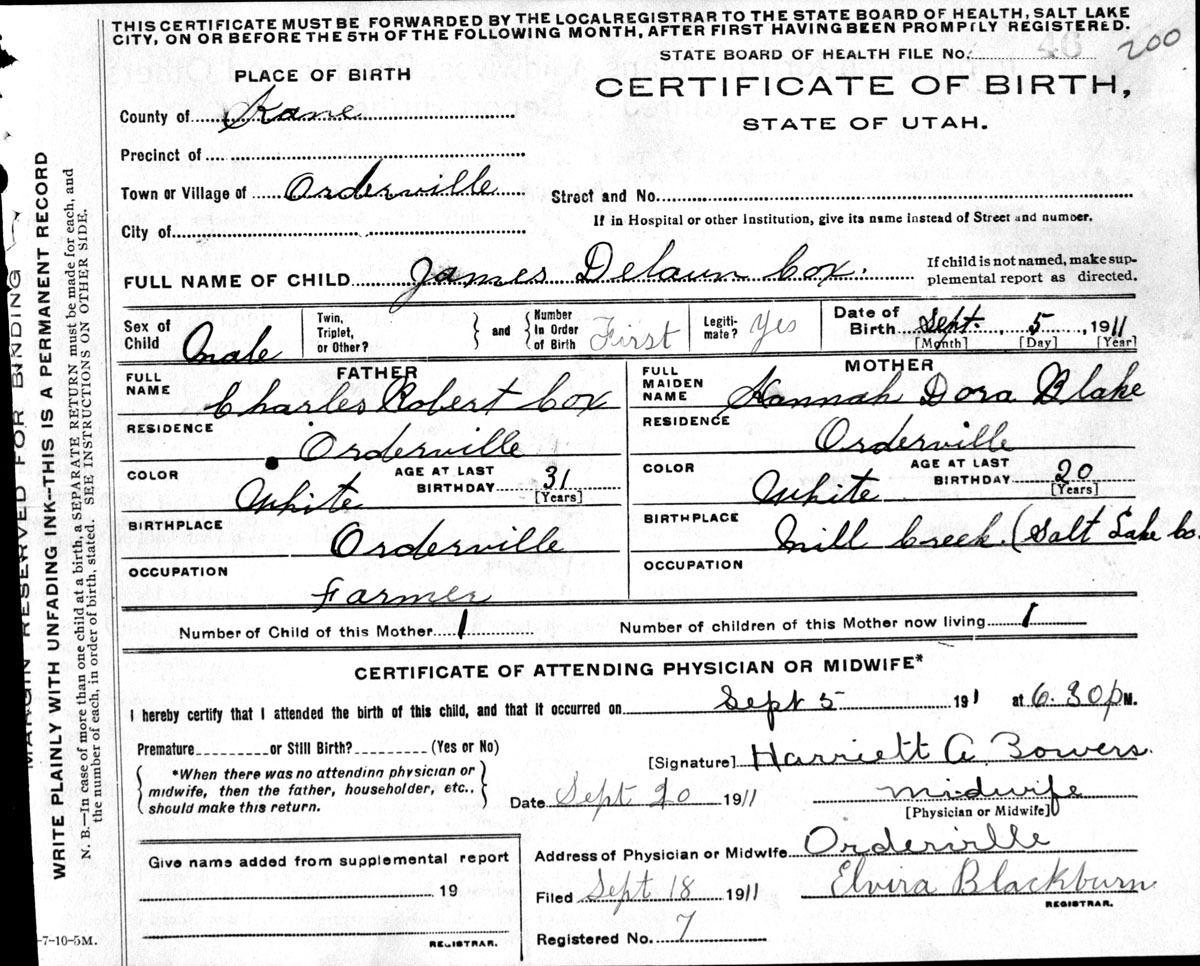 THIS CERTIFICATE MUST BE FORWARDED BY THE LOCAL REGISTRAR TO THE STATE BOARD OF HEALTH, SALT LAKE
CITY, ON OR BEFORE THE 5TH OF THE FOLLOWING MONTH, AFTER FIRST HAVING BEEN PROMPTLY REGISTERED.
200
STATE BOARD OF HEALTH FILE No.
PLACE OF BIRTH
CERTIFICATE OF BIRTH,
STATE OF UTAH.
County of Kane
Precinct of
Town or Village of Orderville Street and No.
City of If in Hospital or other Institution, give its name instead of Street and number.
FULL NAME OF CHILD James Delaun Cox. If child is not named, make sup-
plemental report as directed.
Sex of Child Male Twin, Triplet, or Other? and Number in Order of Birth First Legiti-mate? Yes Date of Birth Sept. 5, 1911
[Month] [Day] [Year]
FATHER MOTHER
FULL NAME Charles Robert Cox FULL MAIDEN NAME Hannah Dora Blake
RESIDENCE Orderville RESIDENCE Orderville
COLOR White AGE AT LAST BIRTHDAY 31 [Years] COLOR White AGE AT LAST BIRTHDAY 20 [Years]
BIRTHPLACE Orderville BIRTHPLACE Mill Creek. (Salt Lake Co.
OCCUPATION Farmer OCCUPATION
Number of Child of this Mother 1 Number of children of this Mother now living 1
CERTIFICATE OF ATTENDING PHYSICIAN OR MIDWIFE*
I hereby certify that I attended the birth of this child, and that it occurred on Sept 5 1911 at 6.30 p M.
Premature or Still Birth? (Yes or No)
*When there was no attending physician or
midwife, then the father, householder, etc.,
should make this return.
[Signature] Harriett A. Bowers.
Date Sept 20 1911 Midwife
[Physician or Midwife]
Give name added from supplemental report
19
REGISTRAR.
Address of Physician or Midwife Orderville
Filed Sept 18 1911 Elvira Blackburn
REGISTRAR.
Registered No. 7
-7-10-5M.
MARGIN RESERVED FOR BINDING
WRITE PLAINLY WITH UNFADING INK--THIS IS A PERMANENT RECORD
N. B.—In case of more than one child at a birth, a SEPARATE RETURN must be made for each, and
the number of each, in order of birth, stated. SEE INSTRUCTIONS ON OTHER SIDE.